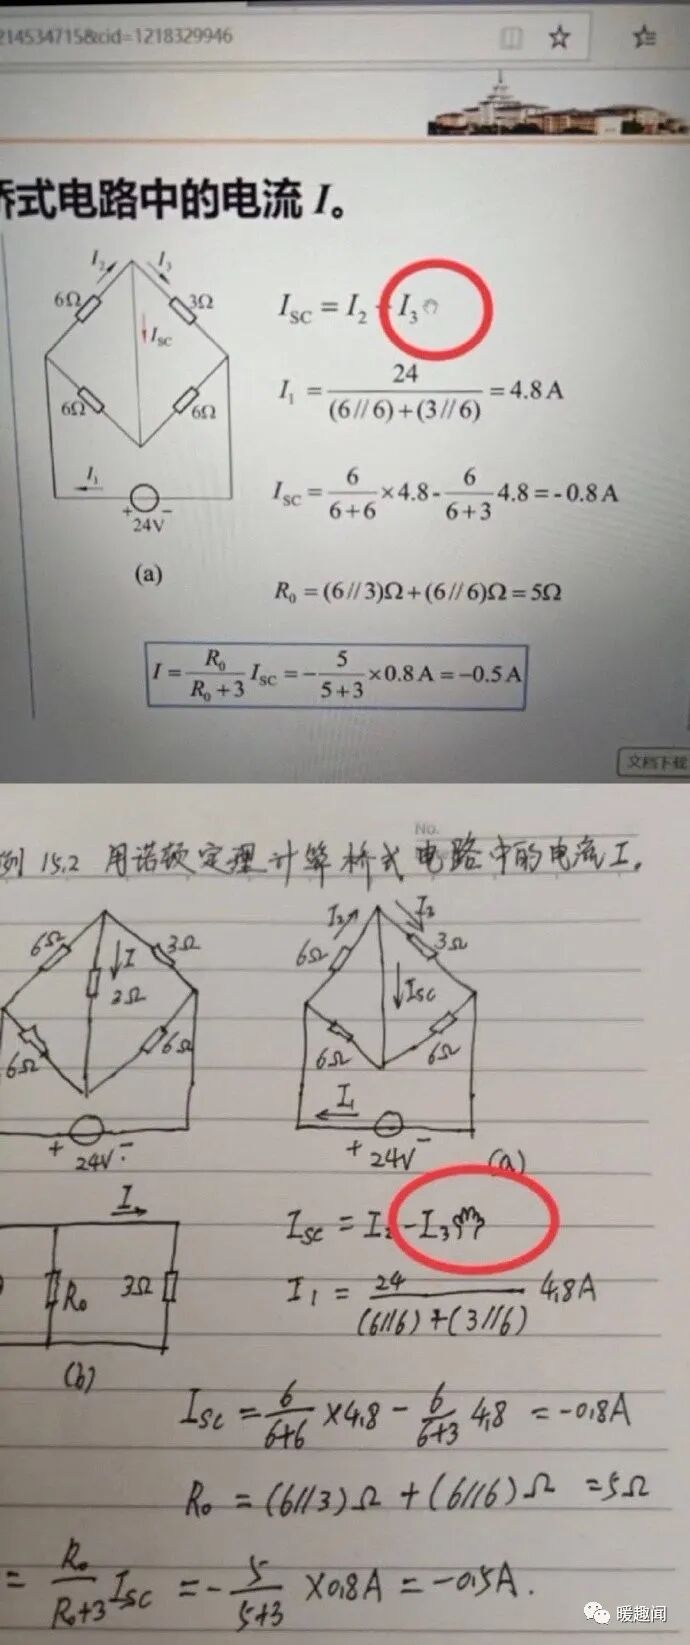 214534715&cid=1218329946
桥式电路中的电流 I。
I₂ I₃
6Ω 3Ω
I_SC
6Ω 6Ω
I₁
+ −
24V
(a)
I_SC = I₂ - I₃
I₁ = 24 / ((6//6)+(3//6)) = 4.8 A
I_SC = 6/(6+6) ×4.8- 6/(6+3) 4.8 = - 0.8 A
R₀ = (6//3)Ω+(6//6)Ω = 5Ω
I = R₀/(R₀+3) I_SC = - 5/(5+3) ×0.8 A = -0.5 A
文档下载
No.
例 15.2 用诺顿定理计算桥式电路中的电流 I。
6Ω 3Ω
I
3Ω
6Ω 6Ω
+ 24V -
I₂ I₃
6Ω 3Ω
Isc
6Ω 6Ω
I₁
+ 24V -
(a)
I
R₀ 3Ω
(b)
Isc = I₂ - I₃
I₁ = 24 / ((6//6)+(3//6)) 4.8A
Isc = 6/(6+6) ×4.8 - 6/(6+3) 4.8 = -0.8A
R₀ = (6//3)Ω + (6//6)Ω = 5Ω
= R₀/(R₀+3) Isc = - 5/(5+3) ×0.8A = -0.5A.
暖趣闻